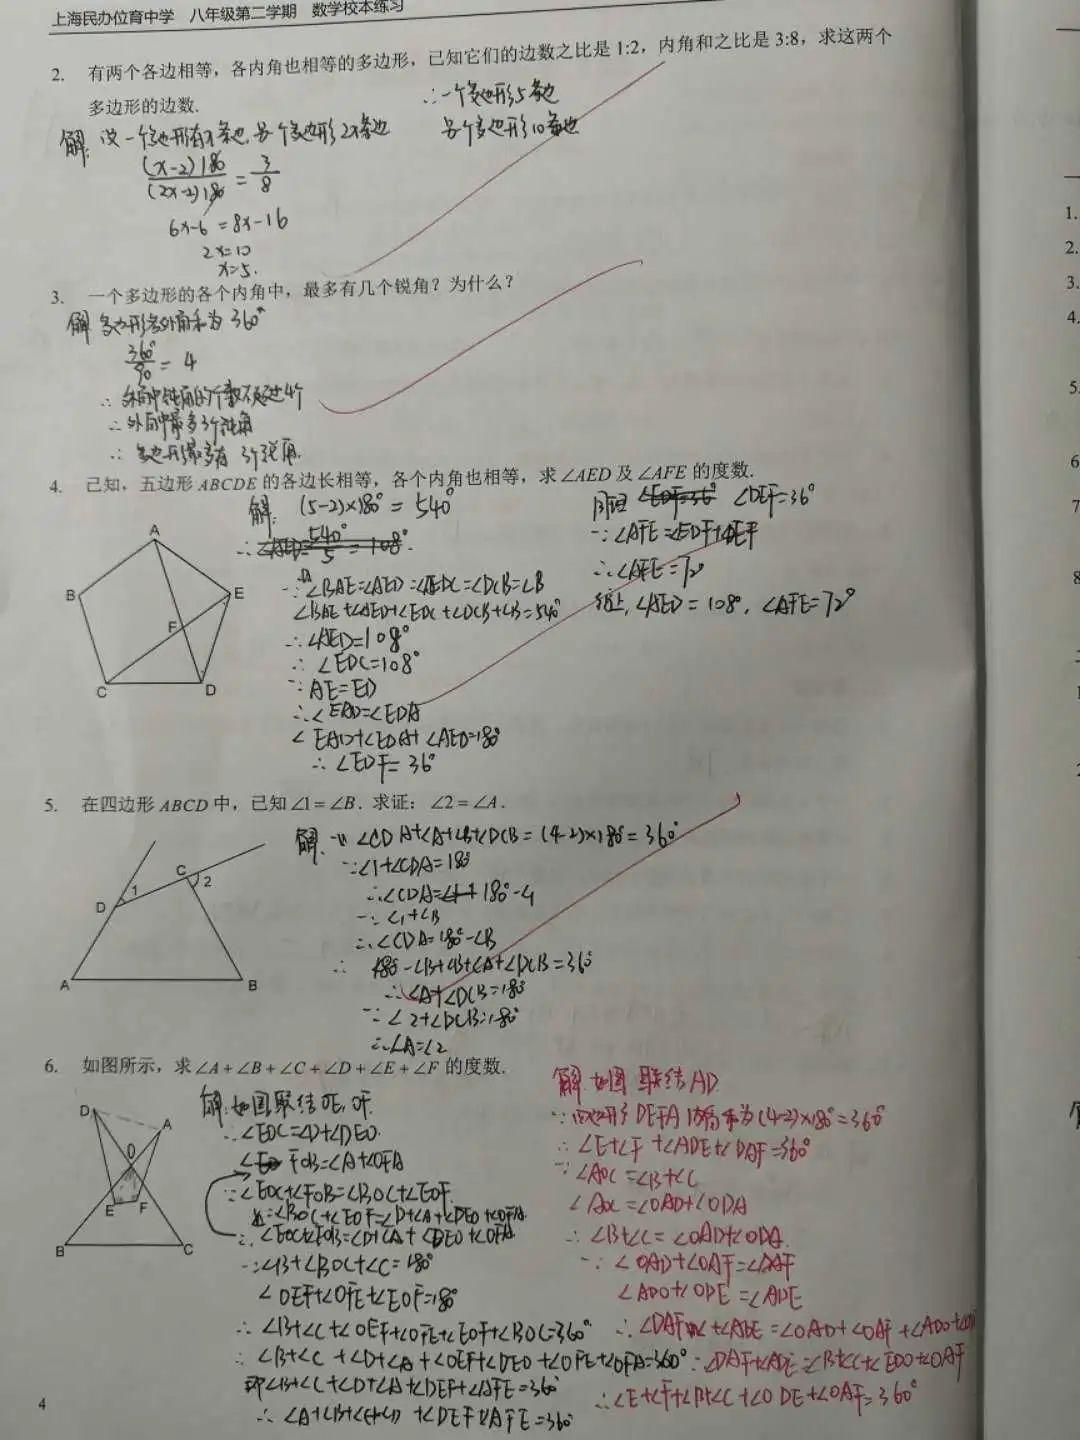 上海民办位育中学 八年级第二学期 数学校本练习
2. 有两个各边相等，各内角也相等的多边形，已知它们的边数之比是 1:2，内角和之比是 3:8，求这两个
多边形的边数.
∴一个多边形5条边
另一个多边形10条边
解: 设一个多边形有x条边,另一个多边形2x条边
(x-2)180/(2x-2)180 = 3/8
6x-6 = 8x-16
2x=10
x=5.
3. 一个多边形的各个内角中，最多有几个锐角？为什么？
解 多边形各外角和为 360°
360°/90 = 4
∴ 外角中钝角的个数不超过4个
∴ 外角中最多3个钝角
∴ 多边形最多有 3个锐角.
4. 已知，五边形 ABCDE 的各边长相等，各个内角也相等，求∠AED 及∠AFE 的度数.
A
B
E
F
C
D
解: (5-2)×180° = 540°
∴ ∠AED=540°/5=108°.
∵ ∠BAE=∠AED=∠EDC=∠DCB=∠B
∠BAE+∠AED+∠EDC+∠DCB+∠B=540°
∴ ∠AED=108°
∴ ∠EDC=108°
∵ AE=ED
∴ ∠EAD=∠EDA
∠EAD+∠EDA+∠AED=180°
∴ ∠EDF=36°
同理 ∠EDF=36° ∠DEF=36°
∵ ∠AFE=∠EDF+∠DEF
∴ ∠AFE=72°
综上, ∠AED=108°, ∠AFE=72°
5. 在四边形 ABCD 中，已知∠1=∠B. 求证：∠2=∠A.
C
2
D
1
A
B
解: ∵ ∠CDA+∠A+∠B+∠DCB=(4-2)×180°=360°
∵ ∠1+∠CDA=180°
∴ ∠CDA=180°-∠1
∵ ∠1+∠B
∴ ∠CDA=180°-∠B
∴ 180°-∠B+∠B+∠A+∠DCB=360°
∴ ∠A+∠DCB=180°
∵ ∠2+∠DCB=180°
∴ ∠A=∠2
6. 如图所示，求∠A+∠B+∠C+∠D+∠E+∠F 的度数.
D
A
O
E
F
B
C
解: 如图联结OE, OF.
∴ ∠EOC=∠D+∠DEO
∠FOB=∠A+∠OFA
∵ ∠EOC+∠FOB=∠BOC+∠EOF
∴ ∠BOC+∠EOF=∠D+∠A+∠DEO+∠OFA
∴ ∠EOC+∠FOB=∠D+∠A+∠DEO+∠OFA
∵ ∠B+∠BOC+∠C=180°
∠OEF+∠OFE+∠EOF=180°
∴ ∠B+∠C+∠OEF+∠OFE+∠EOF+∠BOC=360°
∴ ∠B+∠C+∠D+∠A+∠OEF+∠DEO+∠OFE+∠OFA=360°
即∠B+∠C+∠D+∠A+∠DEF+∠AFE=360°
∴ ∠A+∠B+∠C+∠D+∠DEF+∠AFE=360°
解 如图 联结AD.
∵ 四边形DEFA内角和为(4-2)×180°=360°
∴ ∠E+∠F+∠ADE+∠DAF=360°
∵ ∠AOC=∠B+∠C
∠AOC=∠OAD+∠ODA
∴ ∠B+∠C=∠OAD+∠ODA.
∵ ∠OAD+∠OAF=∠DAF
∠ADO+∠ODE=∠ADE
∴ ∠DAF+∠ADE=∠OAD+∠OAF+∠ADO+
∴ ∠DAF+∠ADE=∠B+∠C+∠EDO+∠OAF
∴ ∠E+∠F+∠B+∠C+∠ODE+∠OAF=360°
4
1.
2.
3.
4.
5.
6
7
8